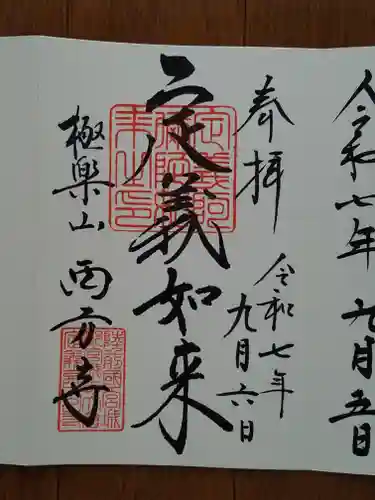 令和七年九月五日
奉拝
令和七年
九月六日
定義如来
極楽山西方寺